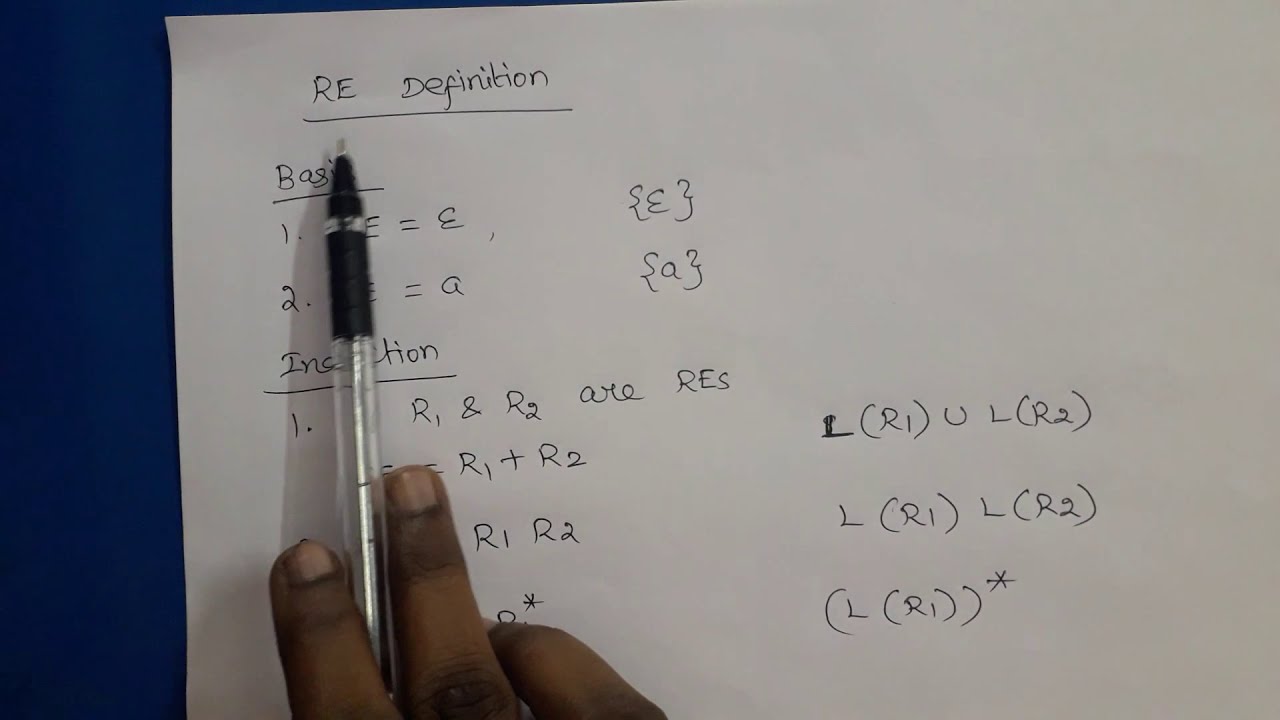 RE Definition
Basi
1. E = ε , {ε}
2. E = a {a}
Induction
1. R1 & R2 are REs
= R1 + R2 L(R1) ∪ L(R2)
R1 R2 L(R1) L(R2)
R* (L(R1))*